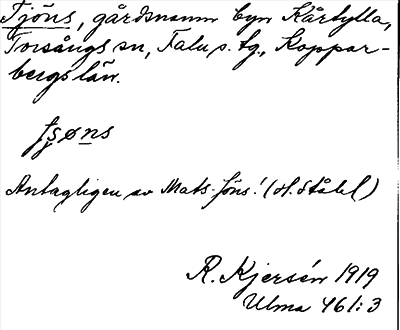 Tjöns, gårdsnamn byn Kårtylla,
Torsångs sn, Falu s. tg., Koppar-
bergs län.
tʂøns
Antagligen av Mats-Jöns! (H. Ståhl)
R. Kjersén 1919
Ulma 461:3